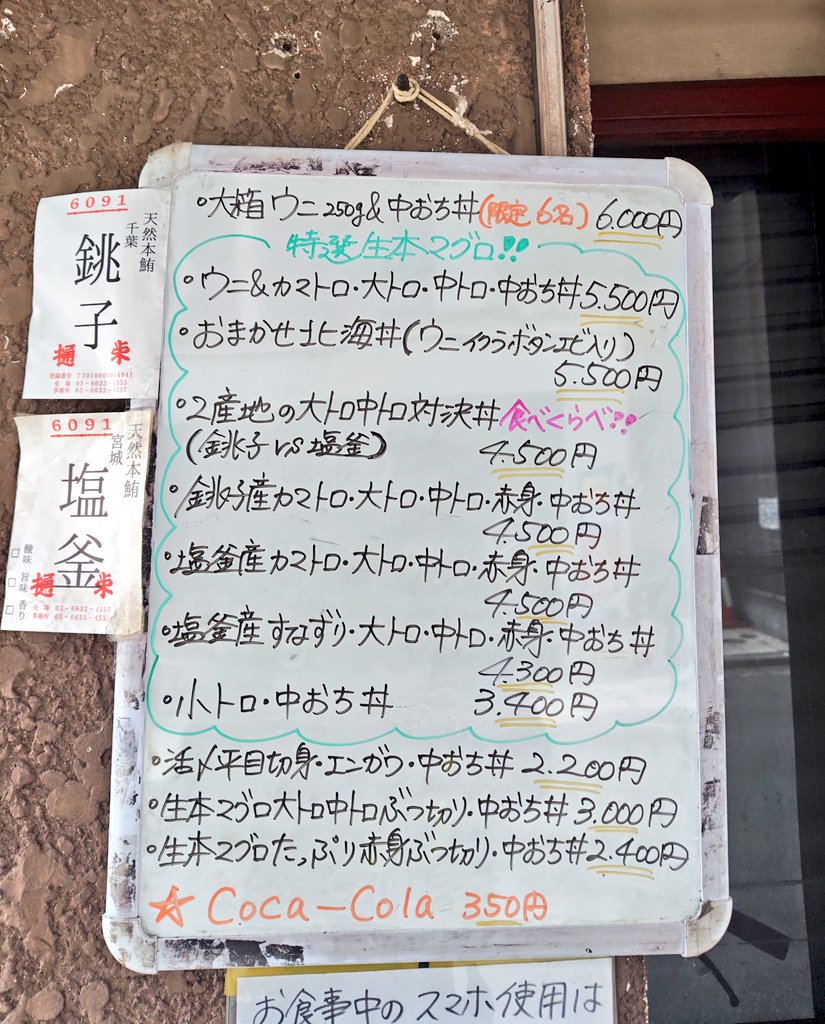 ・大箱ウニ250g&中おち丼(限定6名) 6.000円
特選生本マグロ!!
・ウニ&カマトロ・大トロ・中トロ・中おち丼 5.500円
・おまかせ北海丼(ウニイクラボタンエビ入り)
5.500円
・2産地の大トロ中トロ対決丼 食べくらべ!!
(銚子VS塩釜) 4.500円
・銚子産カマトロ・大トロ・中トロ・赤身・中おち丼
4.500円
・塩釜産カマトロ・大トロ・中トロ・赤身・中おち丼
4.500円
・塩釜産すなずり・大トロ・中トロ・赤身・中おち丼
4.300円
・小トロ・中おち丼 3.400円
・活〆平目切身・エンガワ・中おち丼 2.200円
・生本マグロ大トロ中トロぶつ切り・中おち丼 3.000円
・生本マグロたっぷり赤身ぶつ切り・中おち丼 2.400円
☆ Coca-Cola 350円
お食事中のスマホ使用は
6091
天然本鮪
千葉
銚子
樋米
登録番号
売場 03-6633-4555
事務所 03-6633-4557
6091
天然本鮪
宮城
塩釜
□酸味 □旨味 □香り
樋米
売場 03-6633-4555
事務所 03-6633-4557